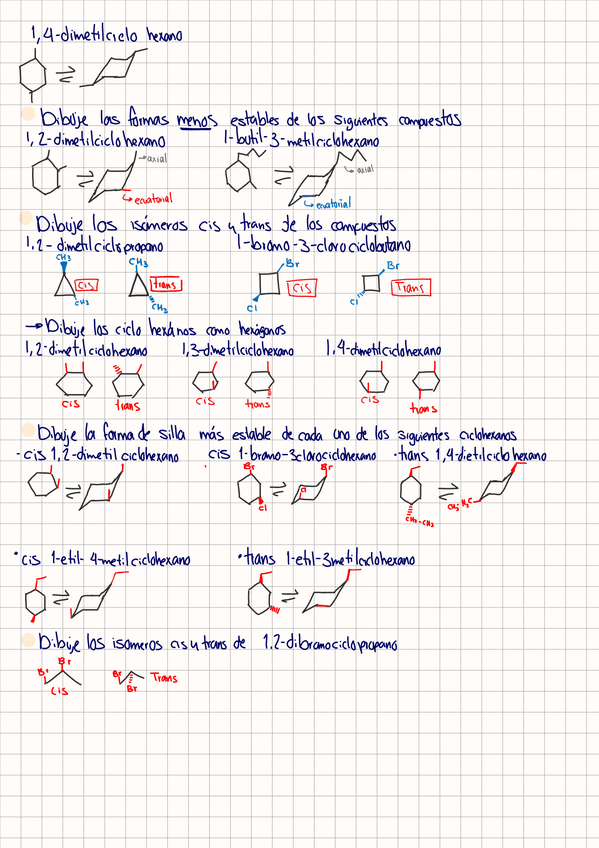 1,4-dimetilciclo hexano
Dibuje las formas menos estables de los siguientes compuestos
1,2-dimetilciclohexano 1-butil-3-metilciclohexano
axial axial
ecuatorial ecuatorial
Dibuje los isómeros cis y trans de los compuestos
1,2-dimetilciclopropano 1-bromo-3-cloro ciclobutano
CH3 CH3 Br Br
cis trans cis Trans
CH3 CH3 Cl Cl
→Dibuje los ciclo hexanos como hexágonos
1,2-dimetilciclohexano 1,3-dimetilciclohexano 1,4-dimetilciclohexano
cis trans cis trans cis trans
Dibuje la forma de silla más estable de cada uno de los siguientes ciclohexanos
-cis 1,2-dimetil ciclohexano cis 1-bromo-3clorociclohexano ·trans 1,4-dietilciclo hexano
Br Br
Cl Cl CH3-H2C
CH2-CH3
•cis 1-etil-4-metilciclohexano •trans 1-etil-3metilciclohexano
Dibuje los isomeros cis y trans de 1,2-dibromociclopropano
Br Br Br Trans
cis Br